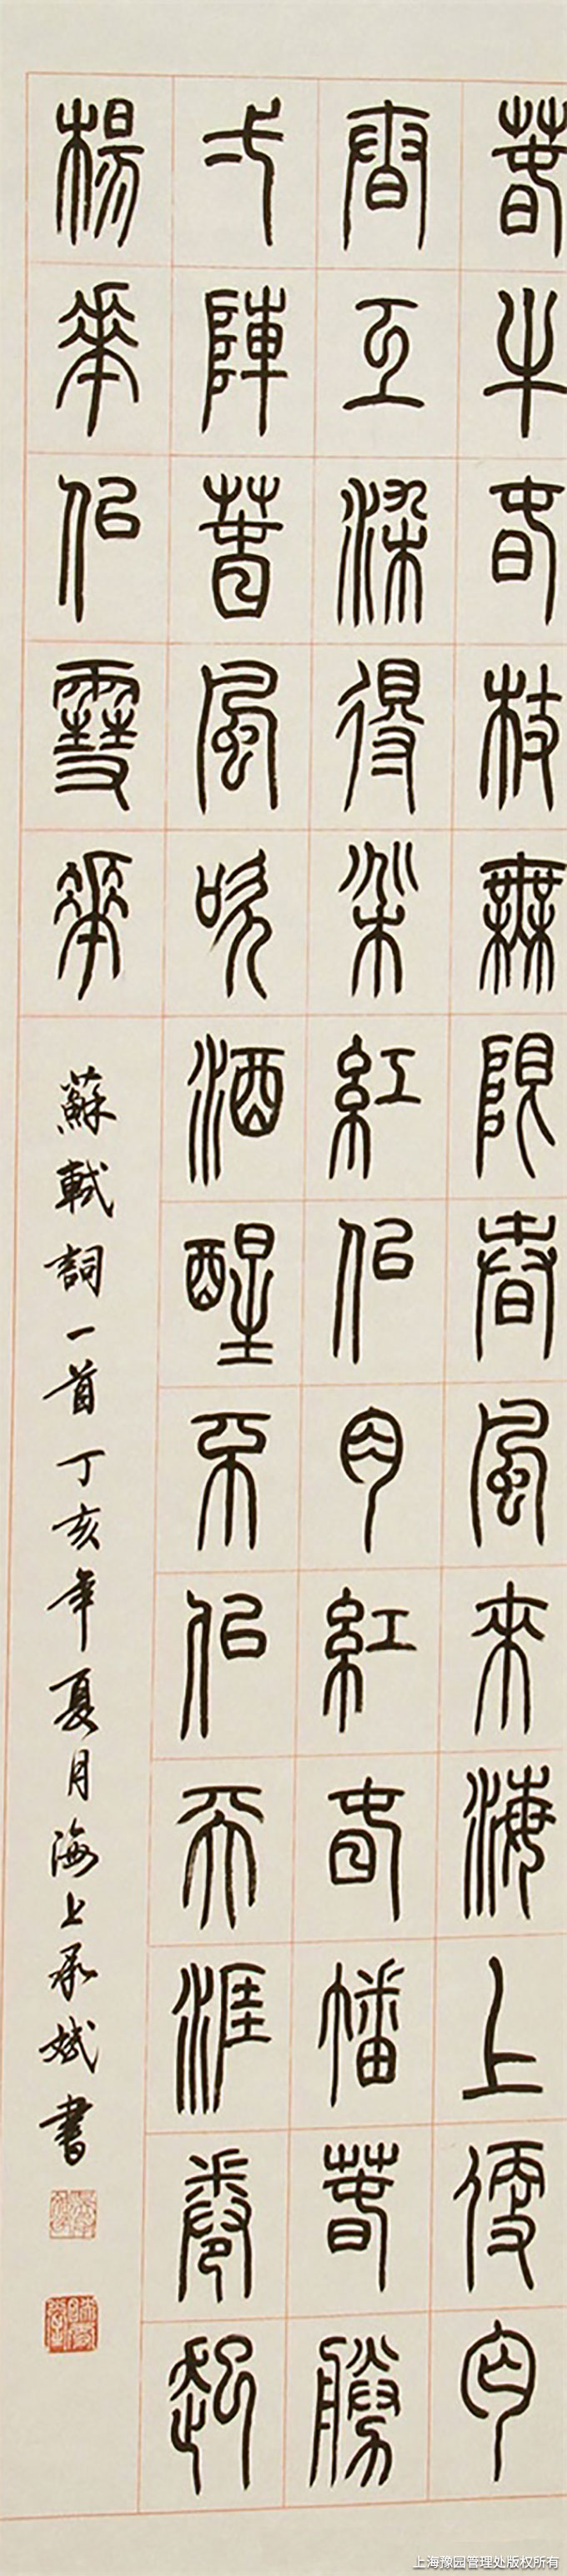 春牛春杖無限春風來海上便丐
春工染得桃紅似肉紅春幡春勝
弌陣春風吹酒醒不似天涯卷起
楊華似雪華
蘇軾詞一首丁亥年夏月海上承斌書
上海豫园管理处版权所有